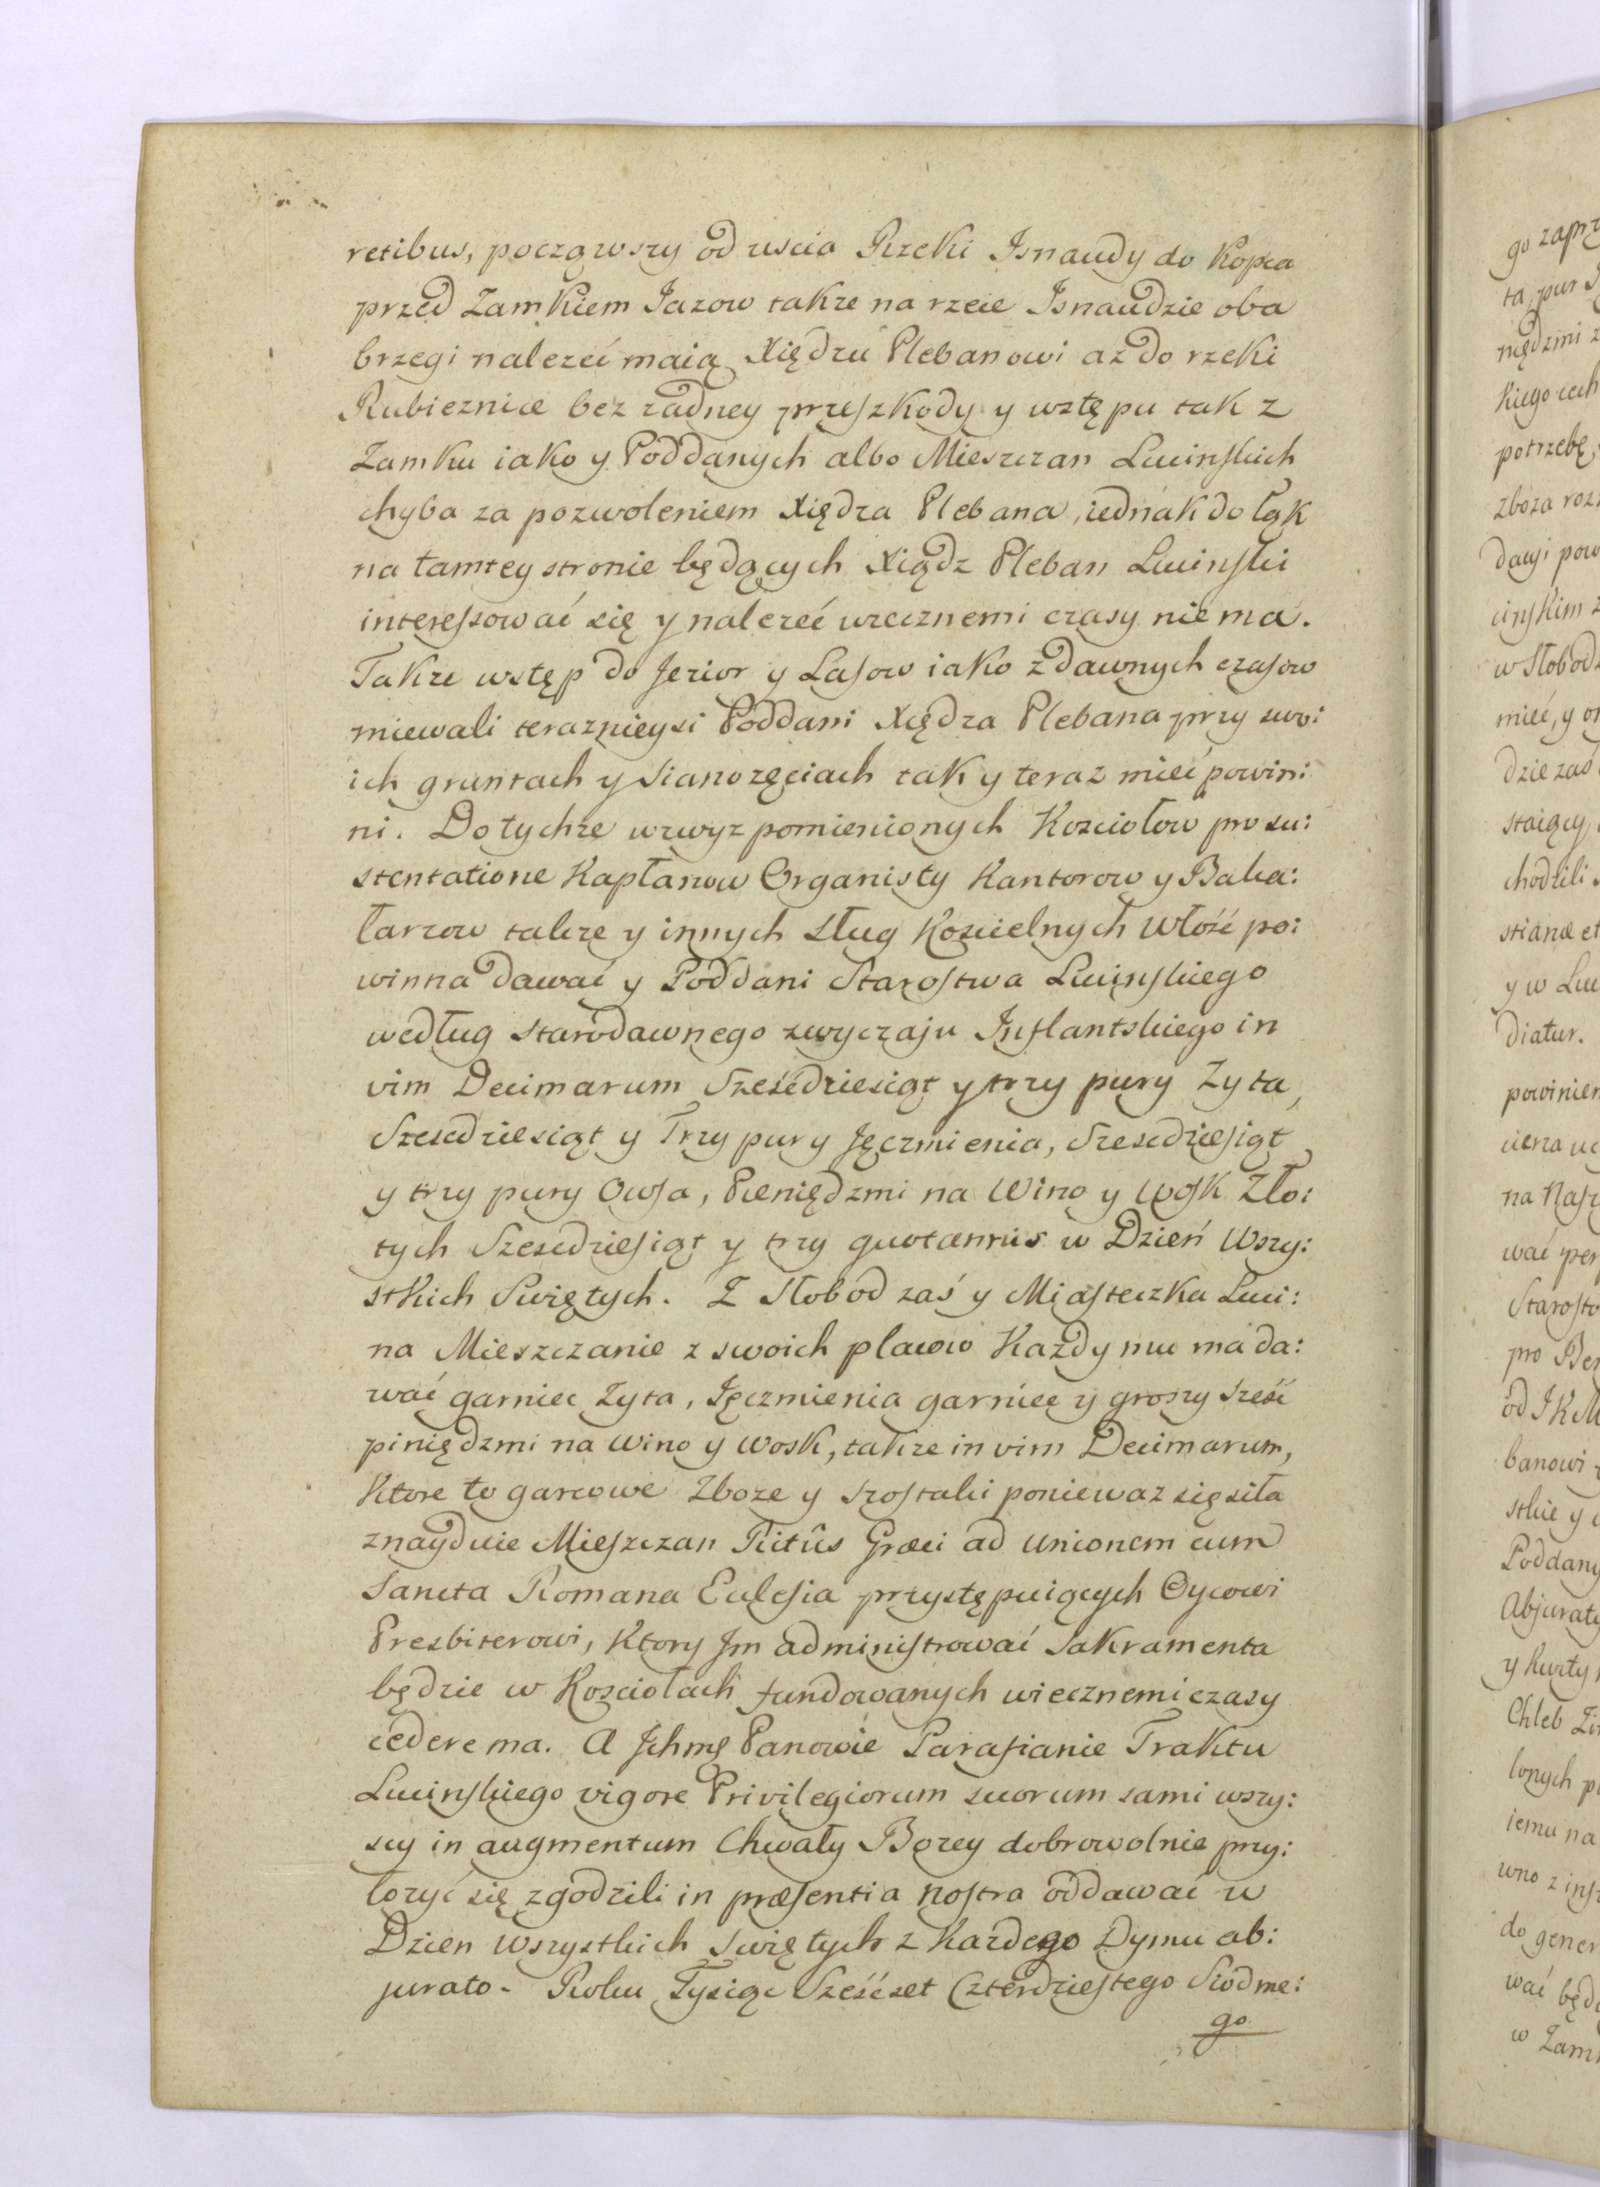 retibus, począwszy od uscia Rzeki Isnaudy do Kopca
przed Zamkiem Jazow takze na rzece Isnaudzie oba
brzegi nalezeć maią Xiędzu Plebanowi az do rzeki
Rubieznice bez zadney przeszkody y wstępu tak z
Zamku iako y Poddanych albo Mieszczan Lucinskich
chyba za pozwoleniem Xiędza Plebana, iednak do łąk
na tamtey stronie będących Xiądz Pleban Lucinski
interessować się y nalezeć wiecznemi czasy nie ma.
Takze wstęp do Jezior y Lasow iako z dawnych czasow
miewali teraznieysi Poddani Xiędza Plebana przy swo:
ich gruntach y Sianozęciach tak y teraz mieć powin:
ni. Do tychze wzwyz pomienionych Kosciołow pro su:
stentatione Kapłanow Organisty Kantorow y Baka:
łarzow takze y innych sług Koscielnych Włość po:
winna dawać y Poddani Starostwa Lucinskiego
według starodawnego zwyczaju Inflantskiego in
vim Decimarum Sześćdziesiąt y trzy pury Zyta,
Szescdziesiąt y Trzy pury Jęczmienia, Szescdziesiąt
y trzy pury Owsa, Pieniędzmi na Wino y Wosk Zło:
tych Szescdziesiąt y trzy quotannis w Dzień Wszy:
stkich Swiętych. Z Słobod zaś y Miasteczka Luci:
na Mieszczanie z swoich placow Każdy mu ma da:
wać garniec Zyta, Jęczmienia garniec y groszy sześć
piniędzmi na wino y wosk, takze in vim Decimarum,
Ktore to garcowe Zboze y szostaki poniewaz się siła
znayduie Mieszczan Ritûs Græci ad Unionem cum
Sancta Romana Eclesia przystępuiących Oycowi
Presbiterowi, Ktory Im administrować Sakramenta
będzie w Kosciołach fundowanych wiecznemi czasy
cedere ma. A Ichmę Panowie Parafianie Traktu
Lucinskiego vigore Privilegiorum suorum sami wszy:
scy in augmentum Chwały Bozey dobrowolnie przy:
lozyć się zgodzili in præsentia nostra oddawać w
Dzien Wszystkich Swiętych z Kazdego Dymu ab:
jurato. Roku Tysiąc Sześćset Czterdziestego Siodme:
go